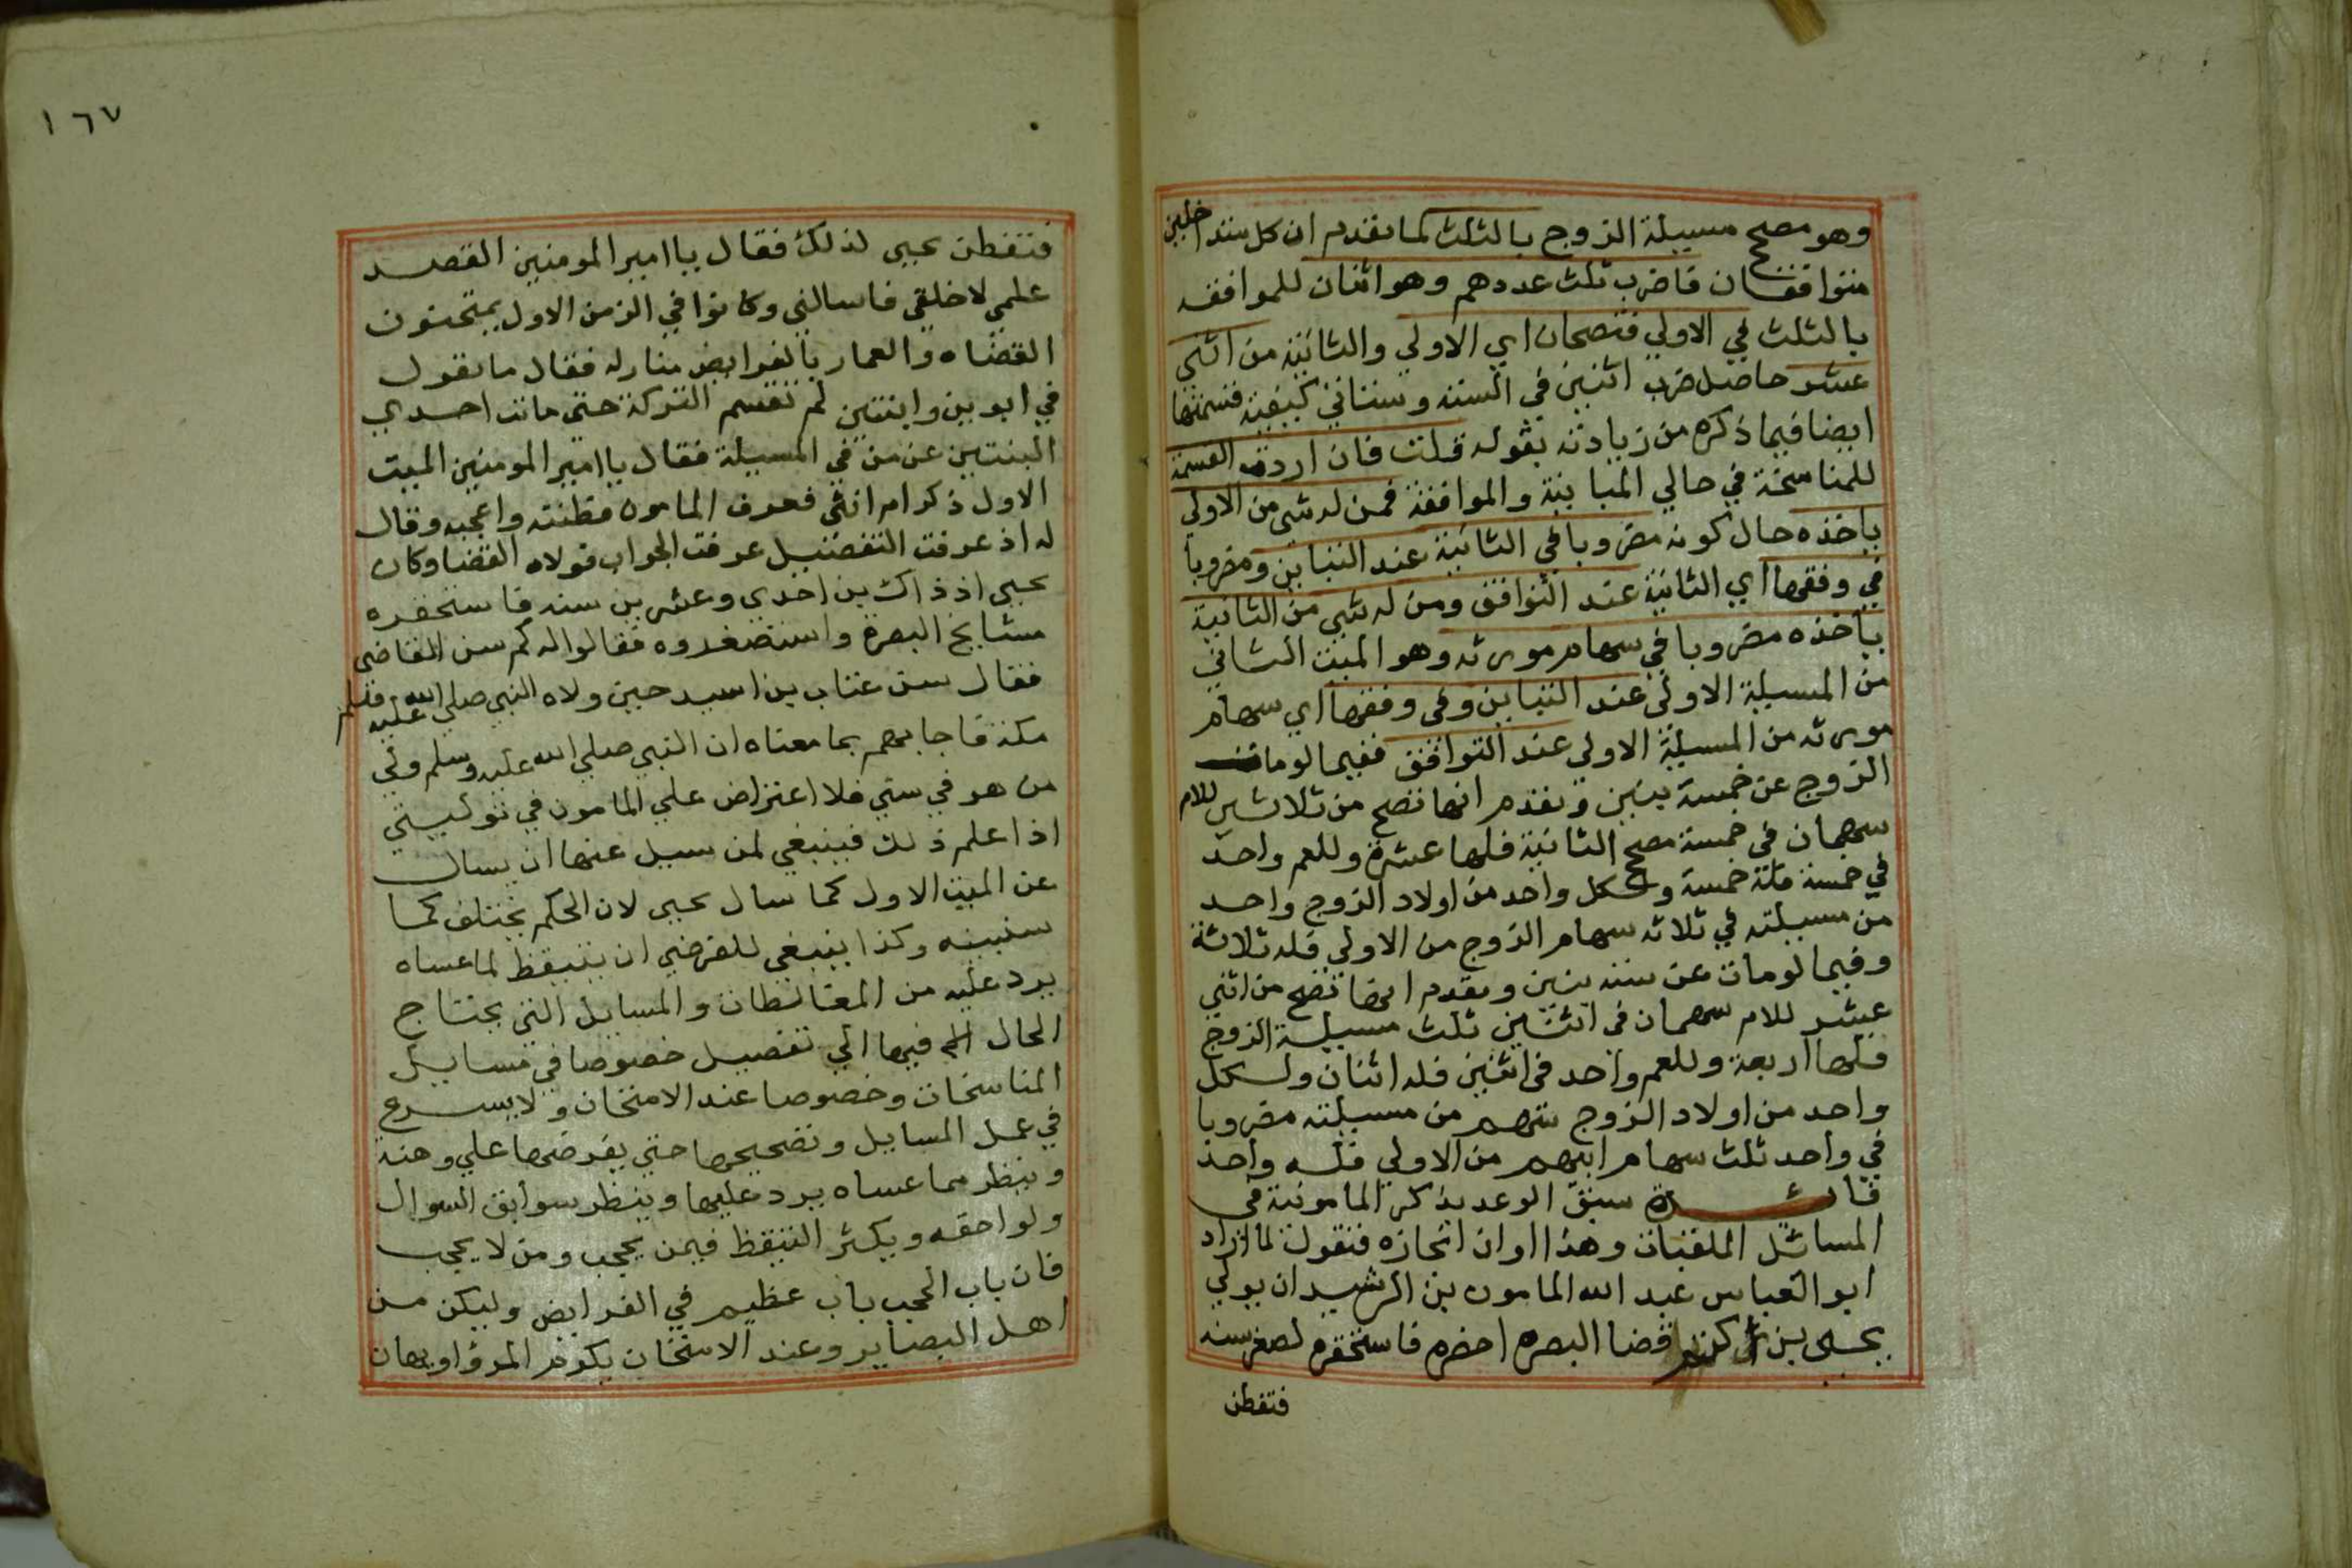 وهو مصح مسيلة الزوج بالثلث كما تقدم ان كل متداخلين
متوافقان فاضرب ثلث عددهم وهو اثنان للموافقه
بالثلث في الاولي فتصحان اي الاولي والثانية من اثني
عشر حاصل ضرب اثنين في الستة وستاتي كيفية قسمتها
ايضا فيما ذكره من زيادته بقوله قلت فان اردت القسمة
للمناسخة في حالي المباينة والموافقة فمن له شي من الاولي
ياخذه حال كونه مضروبا في الثانية عند التباين ومضروبا
في وفقها اي الثانية عند التوافق ومن له شي من الثانية
ياخذه مضروبا في سهام مورثه وهو الميت الثاني
من المسيلة الاولي عند التباين وفي وفقها اي سهام
مورثه من المسيلة الاولي عند التوافق ففيما لو مات
الزوج عن خمسة بنين وتقدم انها تصح من ثلاثين للام
سهمان في خمسة مصح الثانية فلها عشرة وللعم واحد
في خمسة فله خمسة ولكل واحد من اولاد الزوج واحد
من مسيلته في ثلاثه سهام الزوج من الاولي فله ثلاثة
وفيما لو مات عن ستة بنين وتقدم ايضا تصح من اثني
عشر للام سهمان في اثنين ثلث مسيلة الزوج
فلها اربعة وللعم واحد في اثنين فله اثنان ولكل
واحد من اولاد الزوج سهم من مسيلته مضروبا
في واحد ثلث سهام ابيهم من الاولي فله واحد
فائدة سبق الوعد بذكر المامونية في
المسائل الملقبات وهذا اوان انجازه فنقول لما اراد
ابو العباس عبد الله المامون بن الرشيد ان يولي
يحيى بن اكثم قضا البصره احضره فاستحقره لصغر سنه
فتفطن
١٦٧
فتفطن يحيي لذلك فقال يا امير المومنين القصد
علمي لا خلقي فاسالني وكانوا في الزمن الاول يمتحنون
القضاه والعمار بالفرايض منارله فقال ما تقول
في ابوين وابنتين لم تقسم التركة حتي ماتت احدي
البنتين عن من في المسيلة فقال يا امير المومنين الميت
الاول ذكر ام انثي فعرف المامون فطنته واعجبه وقال
له اذ عرفت التفضيل عرفت الجواب فولاه القضا وكان
يحيي اذ ذاك بن احدي وعشرين سنه فاستحقره
مشايخ البصرة واستصغروه فقالوا له كم سن القاضي
فقال سن عتاب بن اسيد حين ولاه النبي صلي الله عليه وسلم
مكة فاجابهم بما معناه ان النبي صلي الله عليه وسلم ولي
من هو في سني فلا اعتراض علي المامون في توليتي
اذا علم ذلك فينبغي لمن سيل عنها ان يسال
عن الميت الاول كما سال يحيي لان الحكم يختلف كما
سنبينه وكذا ينبغي للفرضي ان يتيقظ لما عساه
يرد عليه من المغالطات والمسايل التي يحتاج
الحال فيها الي تفصيل خصوصا في مسايل
المناسخات وخصوصا عند الامتحان ولا يسرع
في عمل المسايل وتصحيحها حتي يفرضها علي وهنة
وينظر مما عساه يرد عليها وينظر سوابق السوال
ولواحقه ويكثر التيقظ فيمن يحجب ومن لا يحجب
فان باب الحجب باب عظيم في الفرايض وليكن من
اهل البصاير وعند الامتحان يكرم المرؤ او يهان